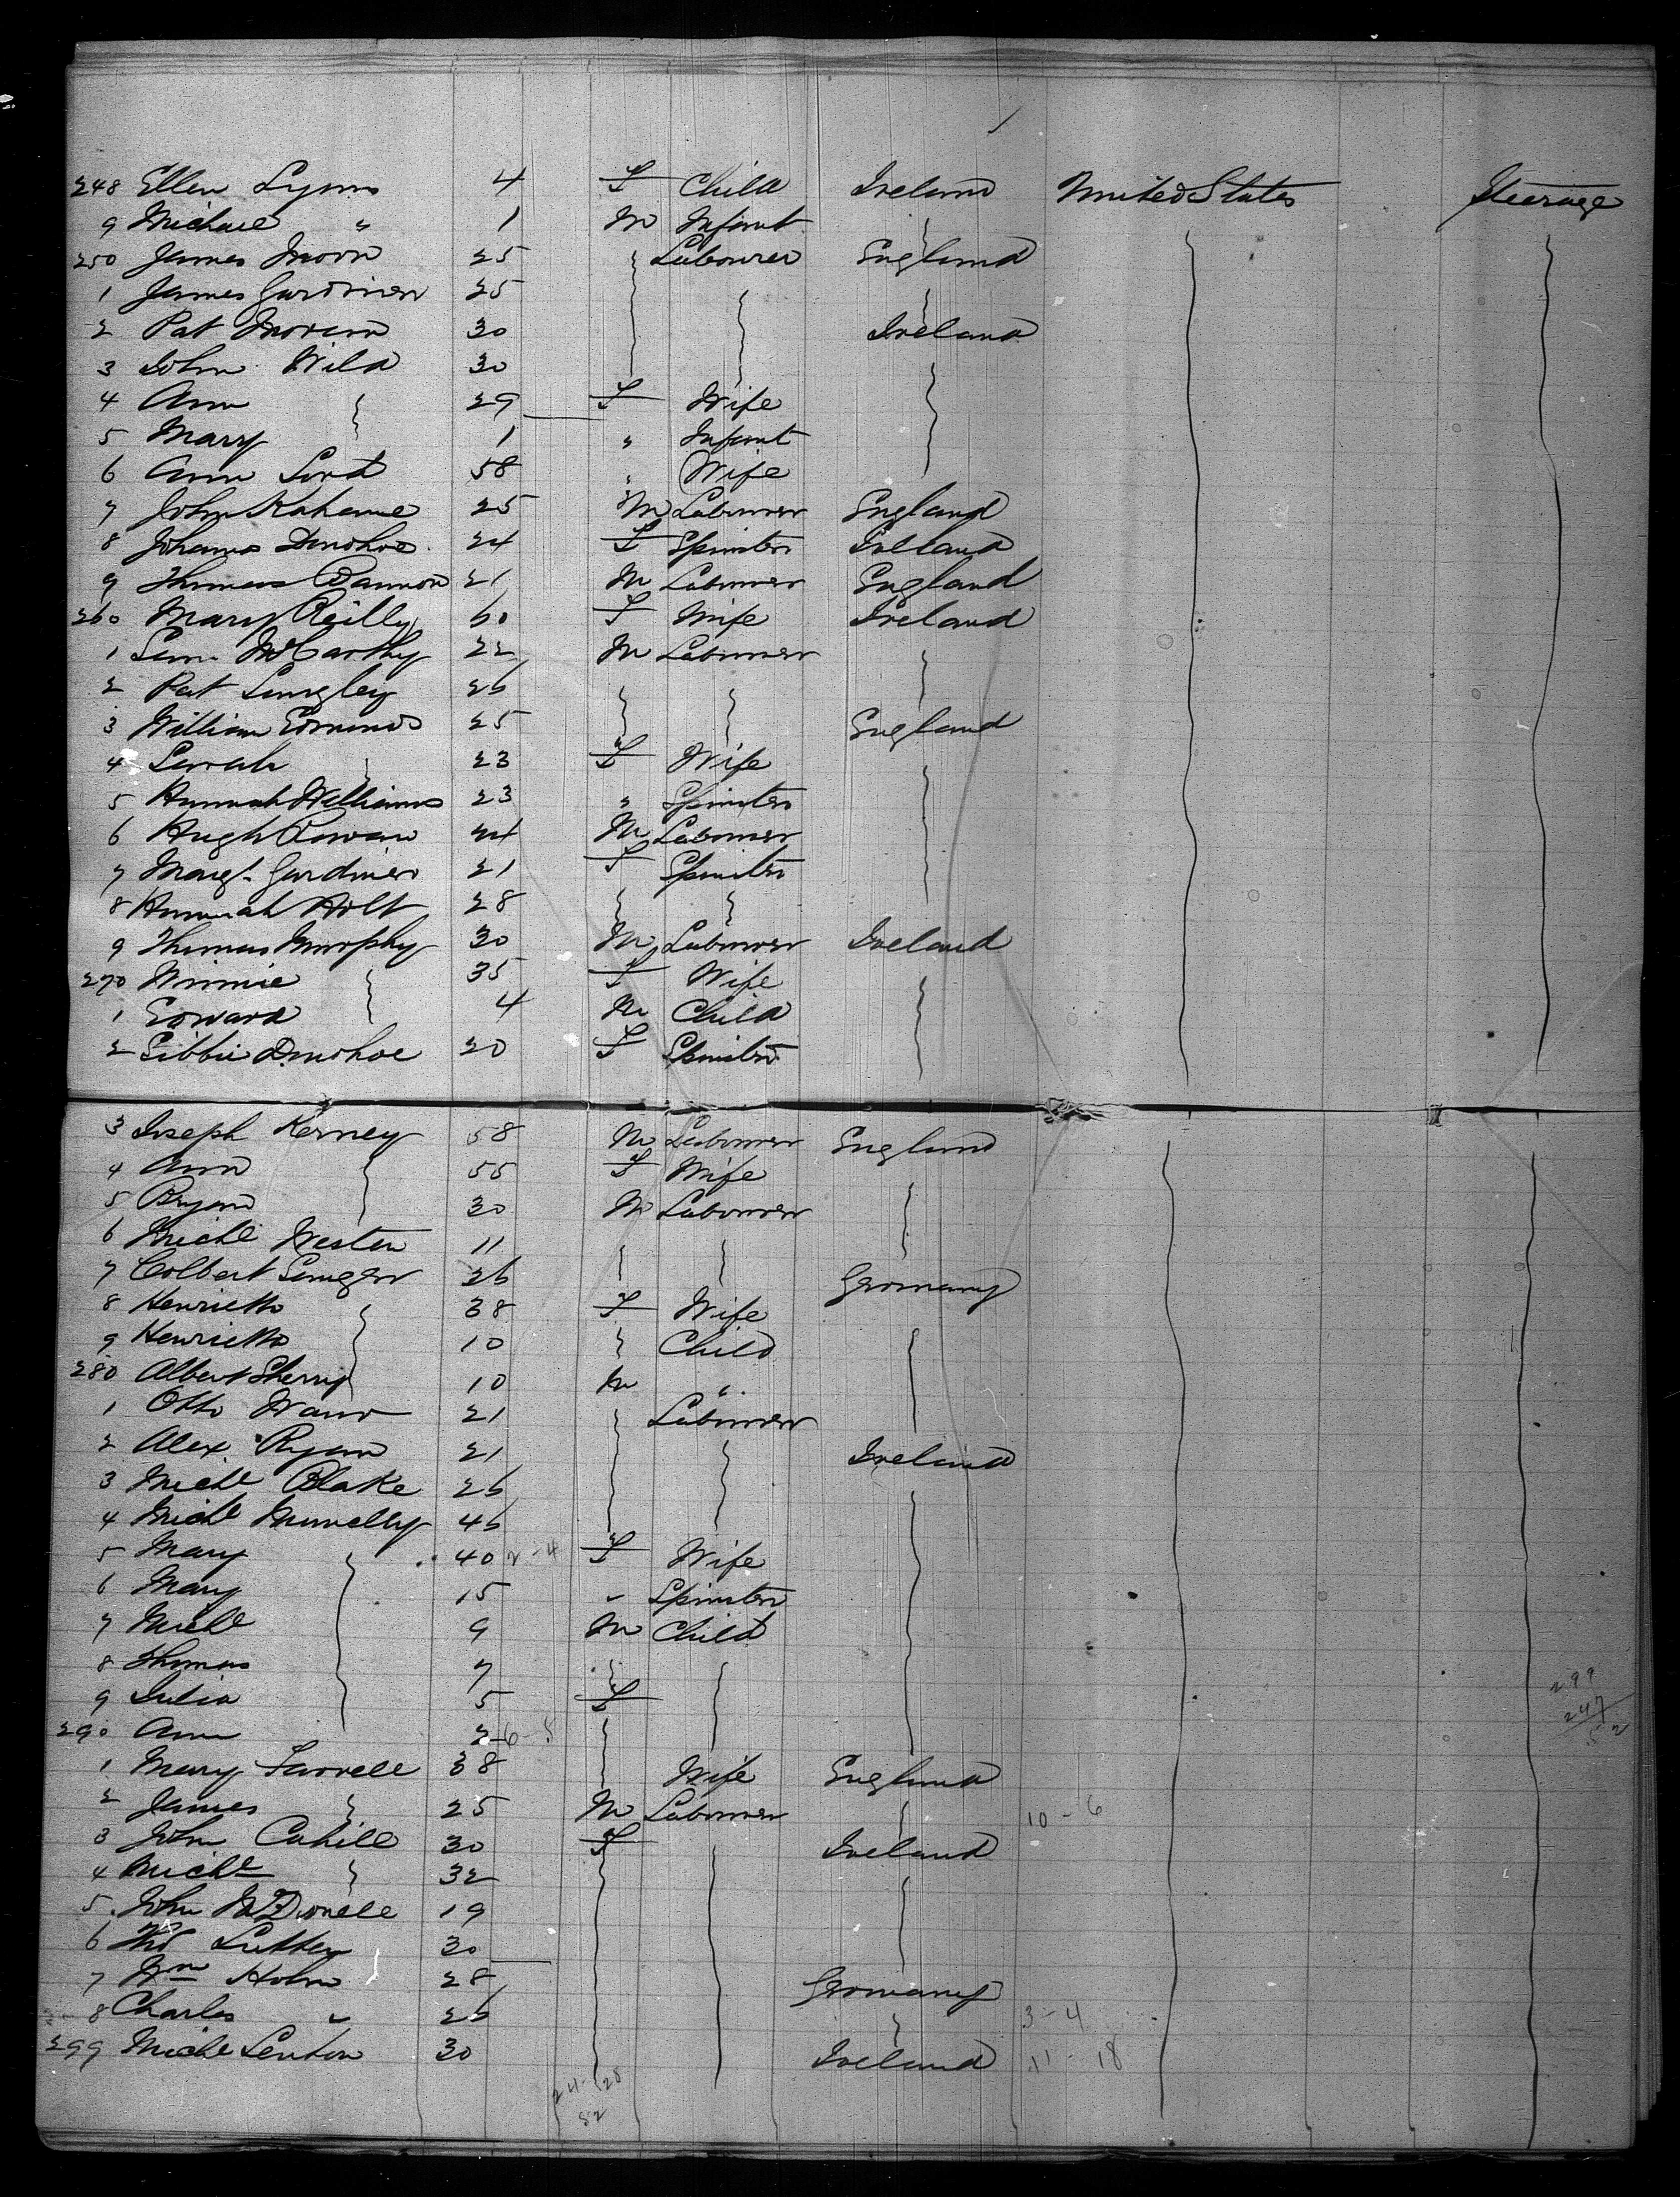 248 Ellen Lyons 4 F Child Ireland United States Steerage
9 Michael " 1 M Infant
250 James Moon 25 Labourer England
1 James Gardiner 25
2 Pat Moran 30 Ireland
3 John Wild 30
4 Ann 29 F Wife
5 Mary 1 " Infant
6 Ann Lord 58 " Wife
7 John Kahane 25 M Labourer England
8 Johanna Donohoe 24 F Spinster Ireland
9 Thomas Bannon 21 M Labourer England
260 Mary Reilly 60 F Wife Ireland
1 McCarthy 22 M Labourer
2 Pat Langley 26
3 William Edmunds 25 England
4 Sarah 23 F Wife
5 Hannah Williams 23 " Spinster
6 Hugh Rowan 24 M Labourer
7 Margt Gardiner 21 F Spinster
8 Hannah Holt 28
9 Thomas Murphy 30 M Labourer Ireland
270 Winnie 35 F Wife
1 Edward 4 M Child
2 Libbie Donohoe 20 F Spinster
3 Joseph Kerney 58 M Labourer England
4 Ann 55 F Wife
5 Bryan 30 M Labourer
6 Michl Weston 11
7 Colbert 26 Germany
8 Henrietta 38 F Wife
9 Henrietta 10 Child
280 Albert Sherry 10 M "
1 Otto 21 Labourer
2 Alex Ryan 21 Ireland
3 Michl Blake 26
4 Michl 46
5 Mary 40 2-4 F Wife
6 Mary 15 " Spinster
7 Michl 9 M Child
8 Thomas 7
9 Julia 5 F
290 Ann 2 6-5
1 Mary Farrell 38 Wife England
2 James 25 M Labourer 10-6
3 John Cahill 30 F Ireland
4 Michl 32
5 John McDonell 19
6 30
7 Wm Holm 28 Germany
8 Charles " 26 3-4
299 Michl Lenton 30 Ireland 11-18
299
247
52
24-28
52